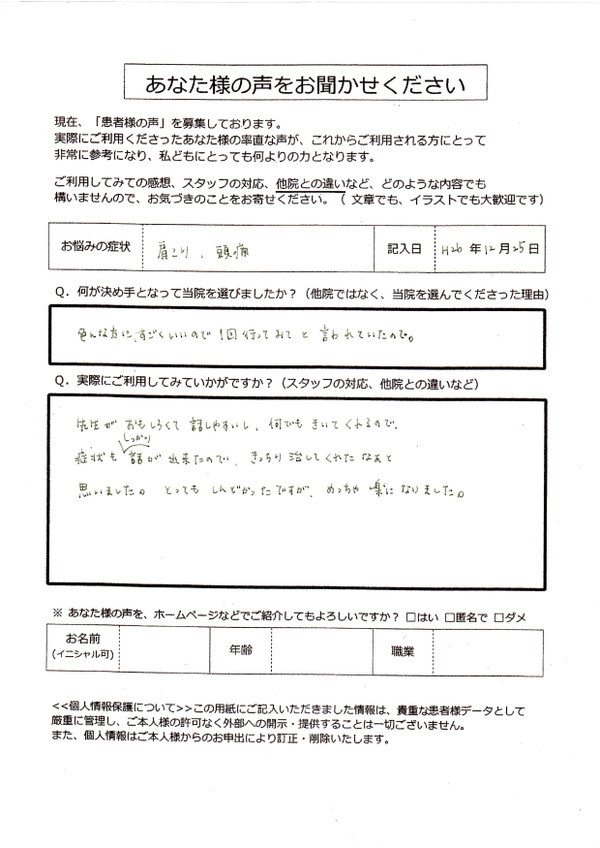 あなた様の声をお聞かせください
現在、「患者様の声」を募集しております。
実際にご利用くださったあなた様の率直な声が、これからご利用される方にとって
非常に参考になり、私どもにとっても何よりの力となります。
ご利用してみての感想、スタッフの対応、他院との違いなど、どのような内容でも
構いませんので、お気づきのことをお寄せください。（ 文章でも、イラストでも大歓迎です）
お悩みの症状 肩こり、頭痛 記入日 H26 年 12 月 25 日
Q．何が決め手となって当院を選びましたか？（他院ではなく、当院を選んでくださった理由）
色んな方に、すごくいいので 1回 行ってみて と 言われていたので。
Q．実際にご利用してみていかがですか？（スタッフの対応、他院との違いなど）
先生が おもしろくて 話しやすいし、何でも きいて くれるので、
しっかり
症状も 話が 出来たので、きっちり 治してくれた なぁと
思いました。 とっても しんどかったですが、めっちゃ 楽に なりました。
※ あなた様の声を、ホームページなどでご紹介してもよろしいですか？ □はい □匿名で □ダメ
お名前 年齢 職業
(イニシャル可)
<<個人情報保護について>>この用紙にご記入いただきました情報は、貴重な患者様データとして
厳重に管理し、ご本人様の許可なく外部への開示・提供することは一切ございません。
また、個人情報はご本人様からのお申出により訂正・削除いたします。